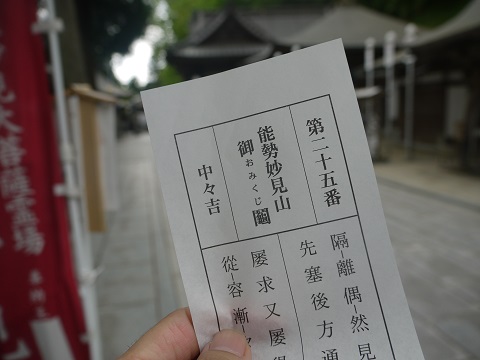 第二十五番
能勢妙見山
御鬮
おみくじ
中々吉
隔離偶然見
先塞後方通
屡求又屡
從容漸
見大菩薩霊場